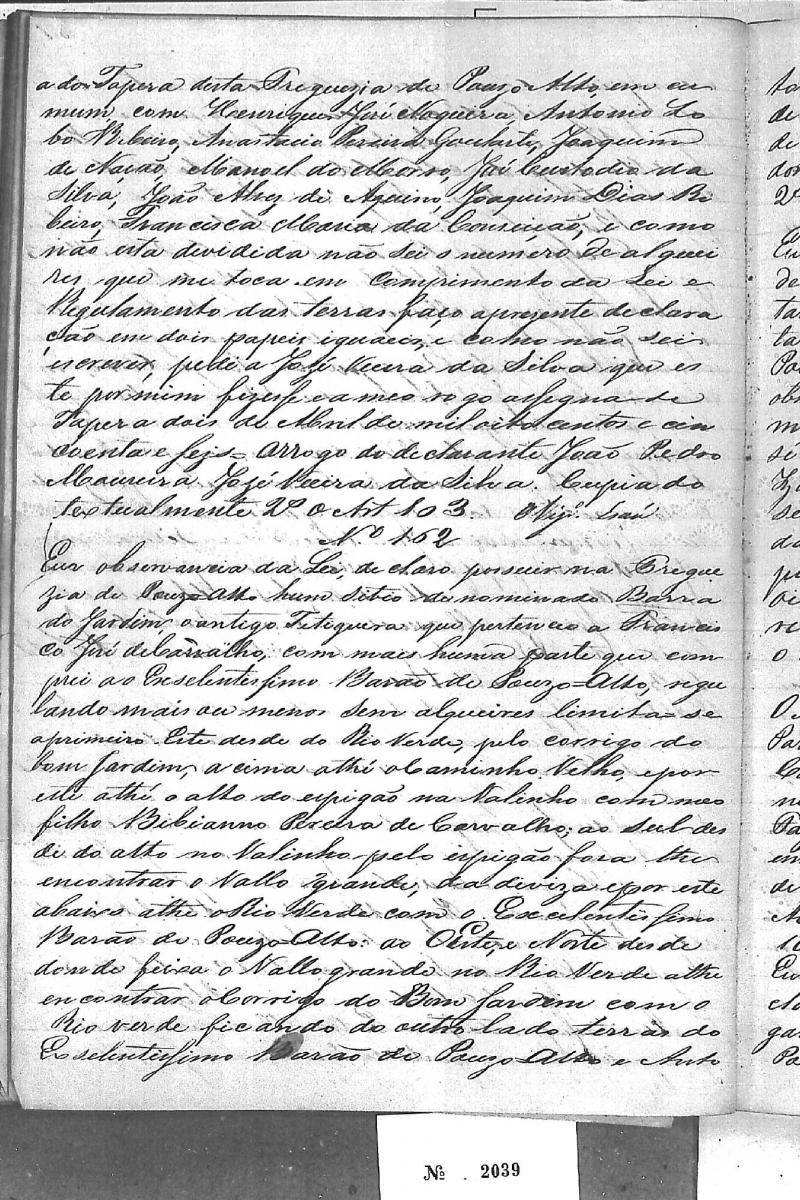 a do Tapera desta Freguezia de Pouzo Alto, em cu
mum, com Henrique José Noguera, Antonio Lo
bo Ribeiro, Anastacio Pereira Goularte, Joaquim
de Nação, Manoel do Morro, José Custodio da
Silva, João Alvez de Aquino, Joaquim Dias Ri
beiro, Francisca Maria da Conseição, e como
não esta devidida não sei o numero de alquei
res que me toca em comprimento da Lei e
Regulamento das terras faço apresente declara
ção em dois papeis iguaeis, e como não sei
escrever, pedi a José Vieira da Silva que es
te por mim fizesse e a meo rogo assegna-se
Tapera dois de Abril de mil oito centos e cin
coenta e seis = Arrogo do declarante João Pedro
Moureira José Vieira da Silva. Cupiado
textualmente 2º o Art 103.
Nº 162
Em observancia da Lei, declaro possuir na Fregue
zia de Pouzo-Alto hum Sitio denominado Barra
do Jardim, o antigo Titiguera que pertenceo a Francis
co José de Carvalho, com mais huma parte que com
prei ao Exselentissimo Barão de Pouzo-Alto, regu
lando mais ou menos sem alqueires limita-se
aprimeiro Este desde do Rio Verde, pelo corrigo do
bom Jardim, a cima athé o Caminho Velho, e por
elle athé o alto do espigão na Valinho com meo
filho Bibianno Pereira de Carvalho; ao Sul des
de do alto no Valinho pelo espigão fora the
encontrar o Vallo grande, da diviza e por este
abaixo athe o Rio Verde com o Excelentissimo
Barão de Pouzo-Alto: ao Oeste, e Norte desde
donde feixa o Vallo grande no Rio Verde athe
encontrar o Corrigo do Bom Jardim com o
Rio verde ficando do outro lado terras do
Exselentissimo Barão de Pouzo-Alto e Anto
Nº 2039